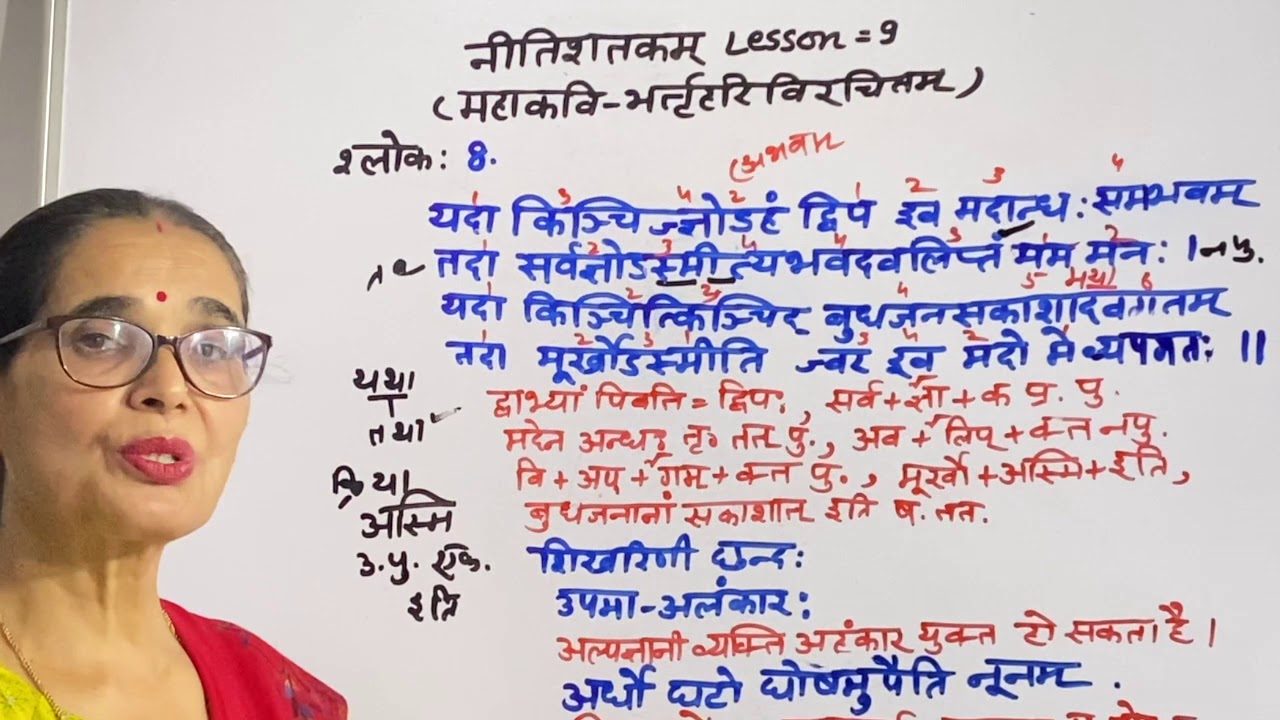 नीतिशतकम् Lesson = 9
(महाकवि-भर्त्तृहरिविरचितम्)
श्लोक: 8.
(अभवम्
यदा किञ्चिज्ज्ञोऽहं द्विप इव मदान्ध: समभवम्
तदा सर्वज्ञोऽस्मीत्यभवदवलिप्तं मम मन: । नपु.
मया
यदा किञ्चित्किञ्चिद् बुधजनसकाशादवगतम्
तदा मूर्खोऽस्मीति ज्वर इव मदो मे व्यपगत: ॥
यथा
तथा
द्वाभ्यां पिबति = द्विप:, सर्व+ज्ञा+क प्र. पु.
मदेन अन्ध: तृ. तत् पु., अव+लिप्+क्त नपु.
वि+अप+गम्+क्त पु., मूर्खो+अस्मि+इति,
बुधजनानां सकाशात् इति ष. तत.
क्रिया
अस्मि
उ.पु. एक.
इति
शिखरिणी छन्द:
उपमा-अलंकार:
अल्पज्ञानी व्यक्ति अहंकार युक्त हो सकता है।
अर्धो घटो घोषमुपैति नूनम् .